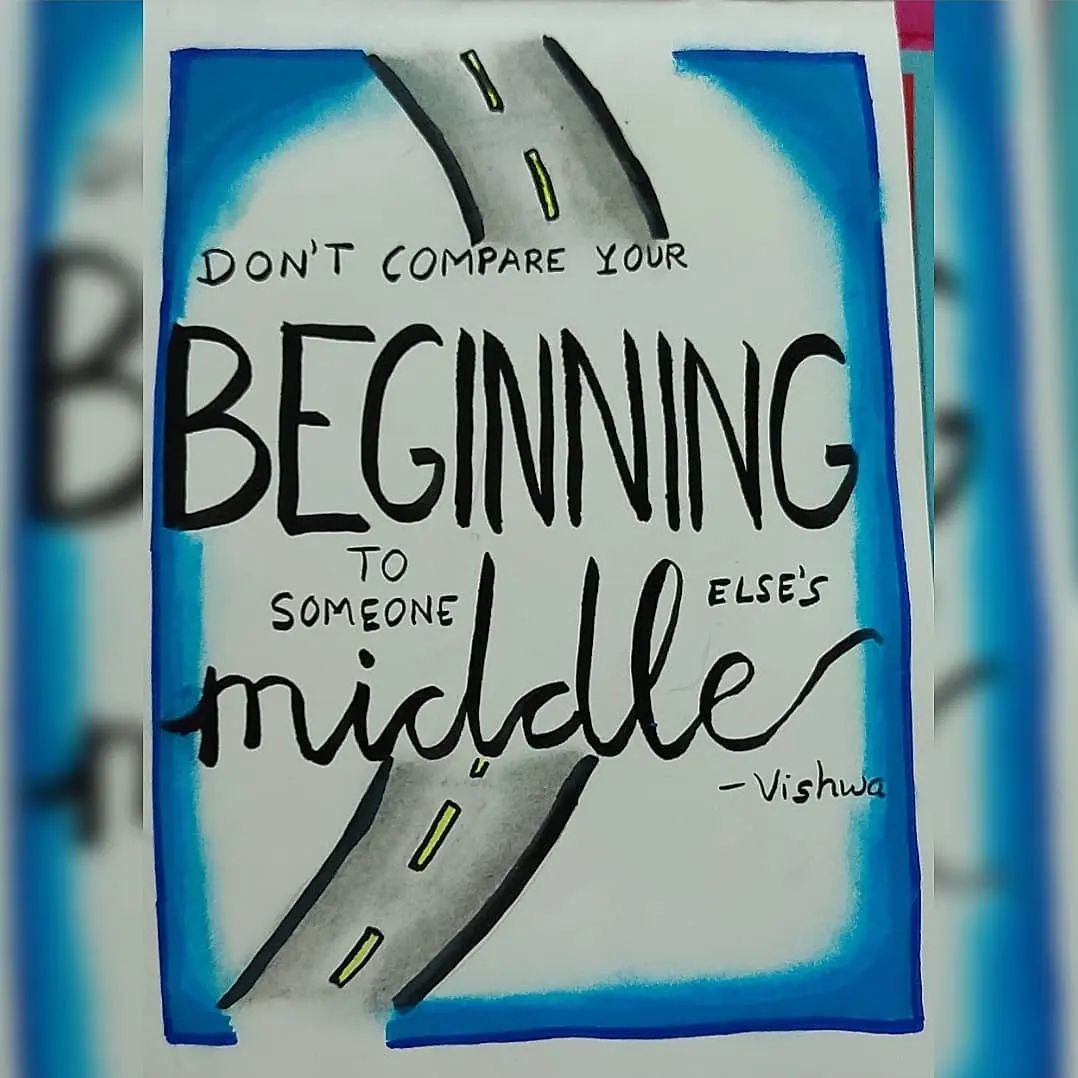 DON'T COMPARE YOUR
BEGINNING
TO
SOMEONE ELSE'S
middle
- Vishwa